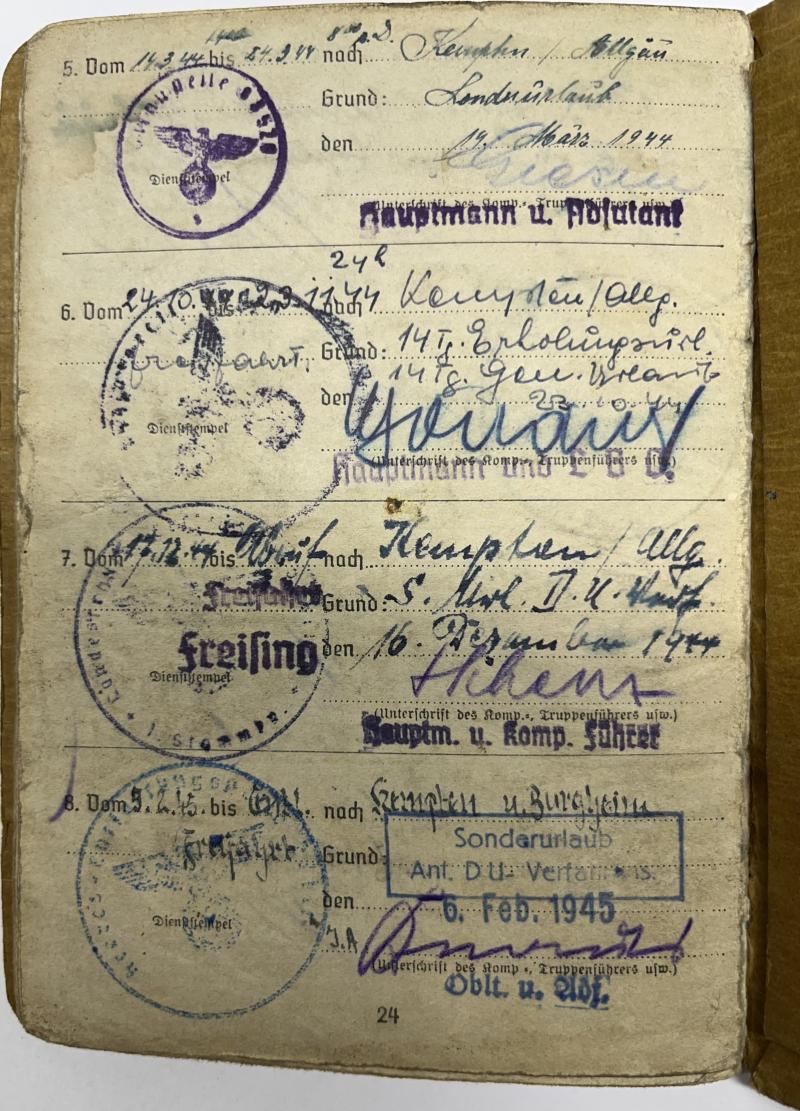 5. Vom 14.3.44 bis 24.3.44 nach Kempten / Allgäu
Grund: Sonderurlaub
den 14. März 1944
Dienststempel
(Unterschrift des Komp.=, Truppenführers usw.)
Hauptmann u. Adjutant
24h
6. Vom 24.10. bis 23.11.44 nach Kempten/Allg.
Freifahrt. Grund: 14 Tg. Erholungsurl.
14 Tg. Gen. Urlaub
den
Dienststempel
(Unterschrift des Komp.=, Truppenführers usw.)
Hauptmann und
7. Vom 17.12.44 bis Abruf nach Kempten / Allg.
Freifahrt Grund: S. Url. D. U. Verf.
Freising den 16. Dezember 1944
Dienststempel
Schenz
(Unterschrift des Komp.=, Truppenführers usw.)
Hauptm. u. Komp. Führer
8. Vom 9.2.45. bis nach Kempten u. Burgheim
Freifahrt Grund: Sonderurlaub
Ant. DU- Verfahrens.
den 6. Feb. 1945
Dienststempel
J.A
(Unterschrift des Komp.=, Truppenführers usw.)
Oblt. u. Adj.
24